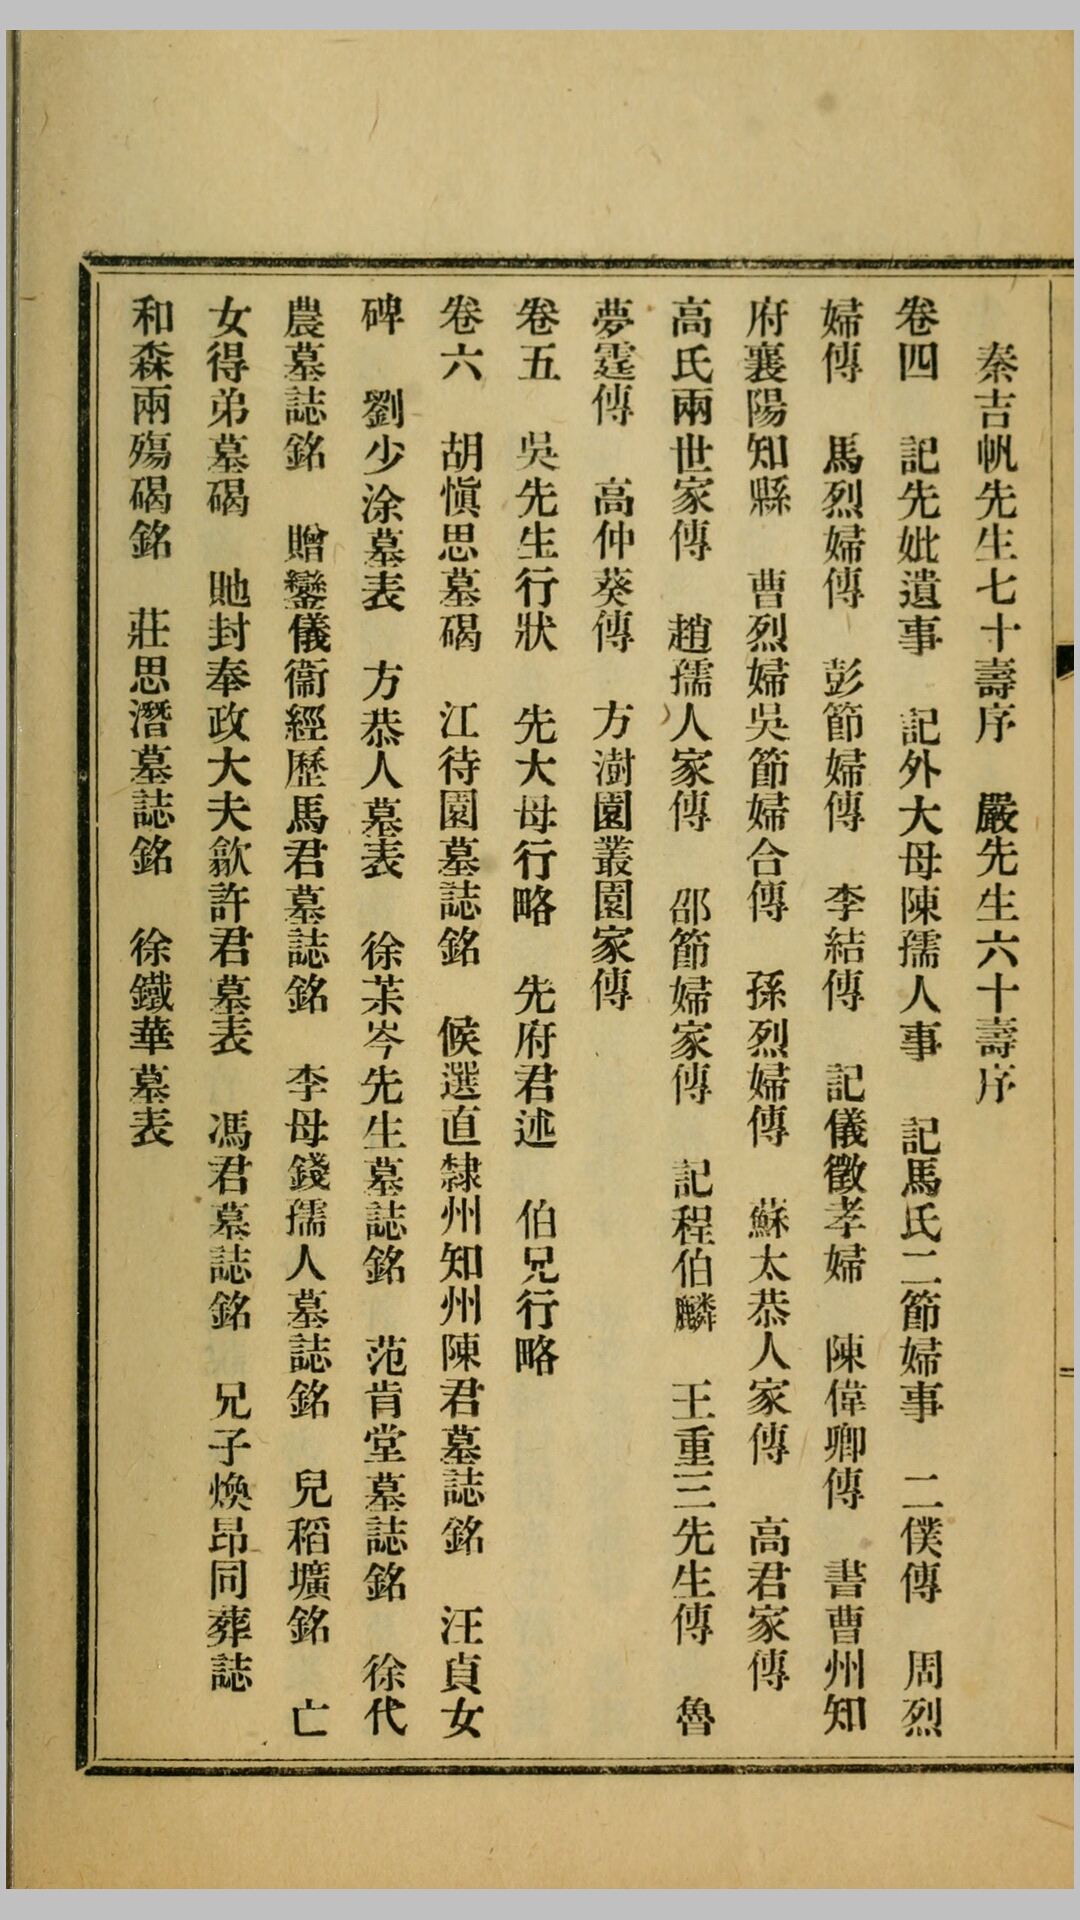 秦吉帆先生七十壽序　嚴先生六十壽序
卷四　記先妣遺事　記外大母陳孺人事　記馬氏二節婦事　二僕傳　周烈
婦傳　馬烈婦傳　彭節婦傳　李結傳　記儀徵孝婦　陳偉卿傳　書曹州知
府襄陽知縣　曹烈婦吳節婦合傳　孫烈婦傳　蘇太恭人家傳　高君家傳
高氏兩世家傳　趙孺人家傳　邵節婦家傳　記程伯麟　王重三先生傳　魯
夢霆傳　高仲葵傳　方澍園叢園家傳
卷五　吳先生行狀　先大母行略　先府君述　伯兄行略
卷六　胡愼思墓碣　江待園墓誌銘　候選直隸州知州陳君墓誌銘　汪貞女
碑　劉少涂墓表　方恭人墓表　徐茮岑先生墓誌銘　范肯堂墓誌銘　徐代
農墓誌銘　贈鑾儀衞經歷馬君墓誌銘　李母錢孺人墓誌銘　兒稻壙銘　亡
女得弟墓碣　貤封奉政大夫歙許君墓表　馮君墓誌銘　兄子煥昂同葬誌
和森兩殤碣銘　莊思潛墓誌銘　徐鐵華墓表